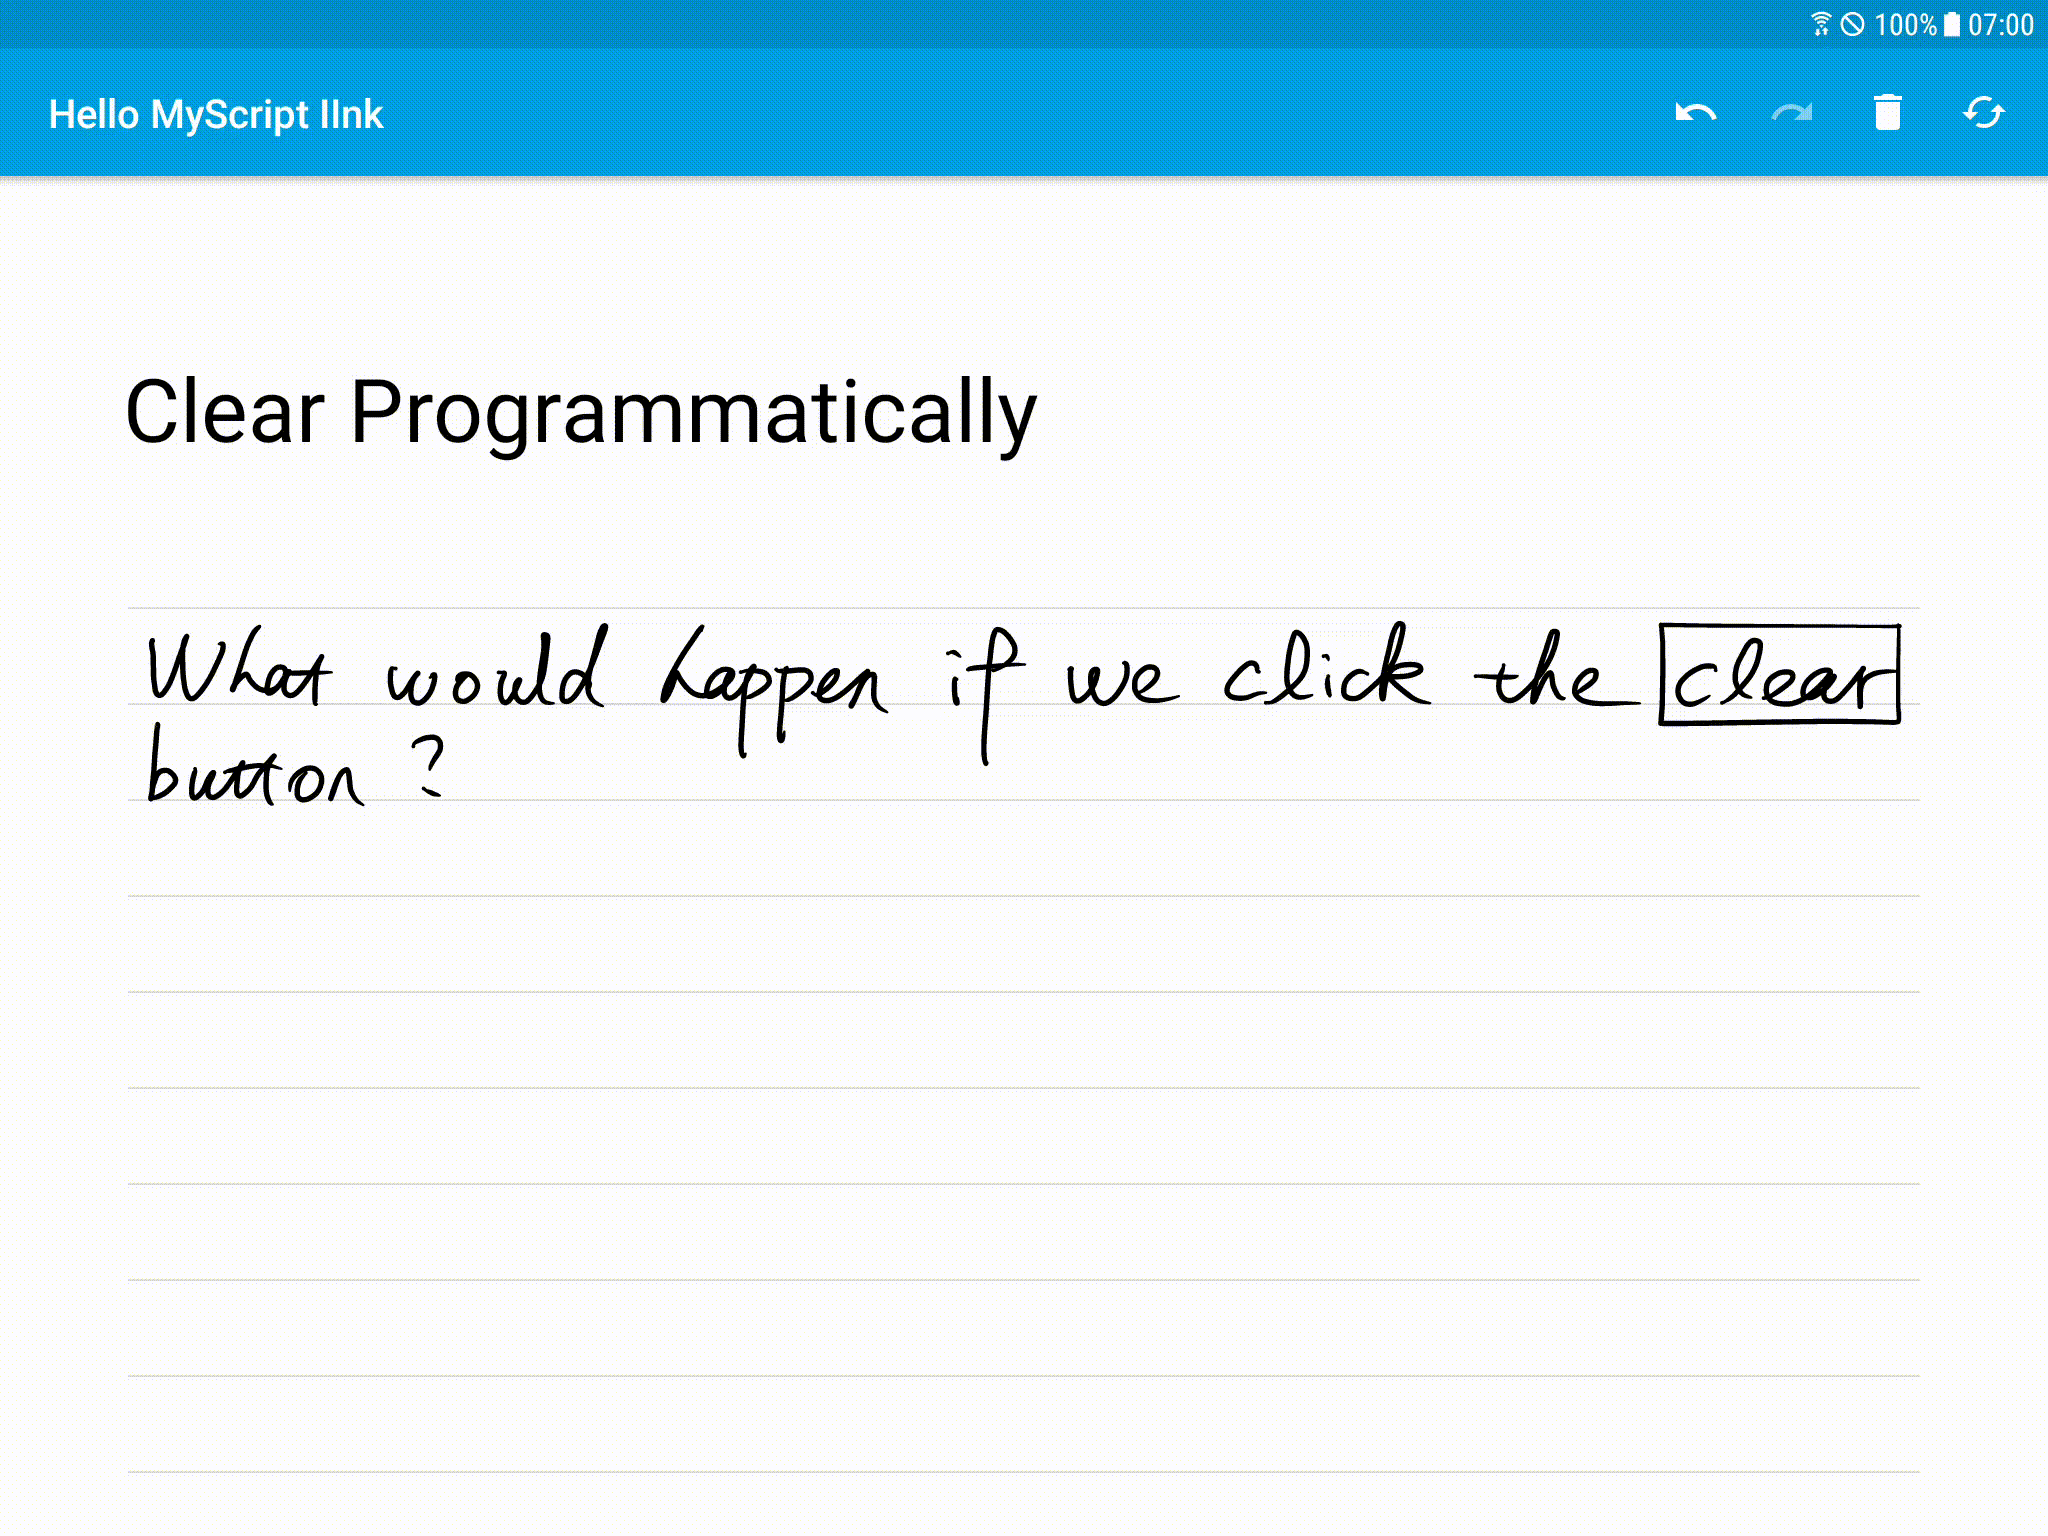 100% 07:00
Hello MyScript IInk
Clear Programmatically
What would happen if we click the clear
button ?